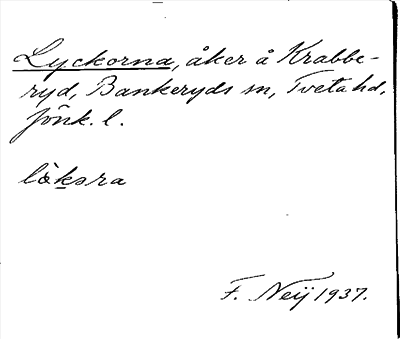 Lyckorna, åker å Krabbe-
ryd, Bankeryds sn, Tveta hd,
Jönk. l.
lòksra
F. Neij 1937.